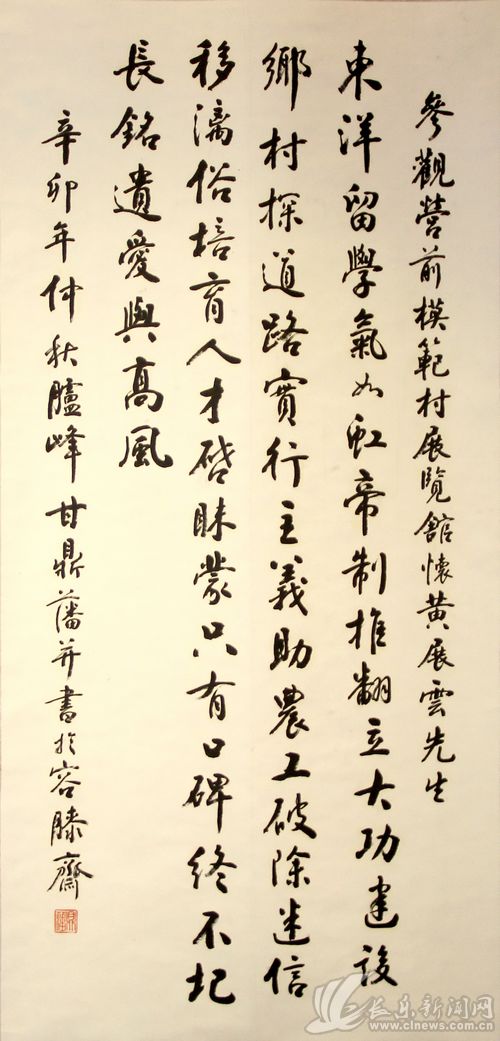 參觀營前模範村展覽館懷黃展雲先生
東洋留學氣如虹帝制推翻立大功建設
鄉村探道路實行主義助農工破除迷信
移漓俗培育人才啓昧蒙只有口碑終不圮
長銘遺愛與高風
辛卯年仲秋臚峰甘鼎藩并書於容膝齋
长乐新闻网
www.clnews.com.cn